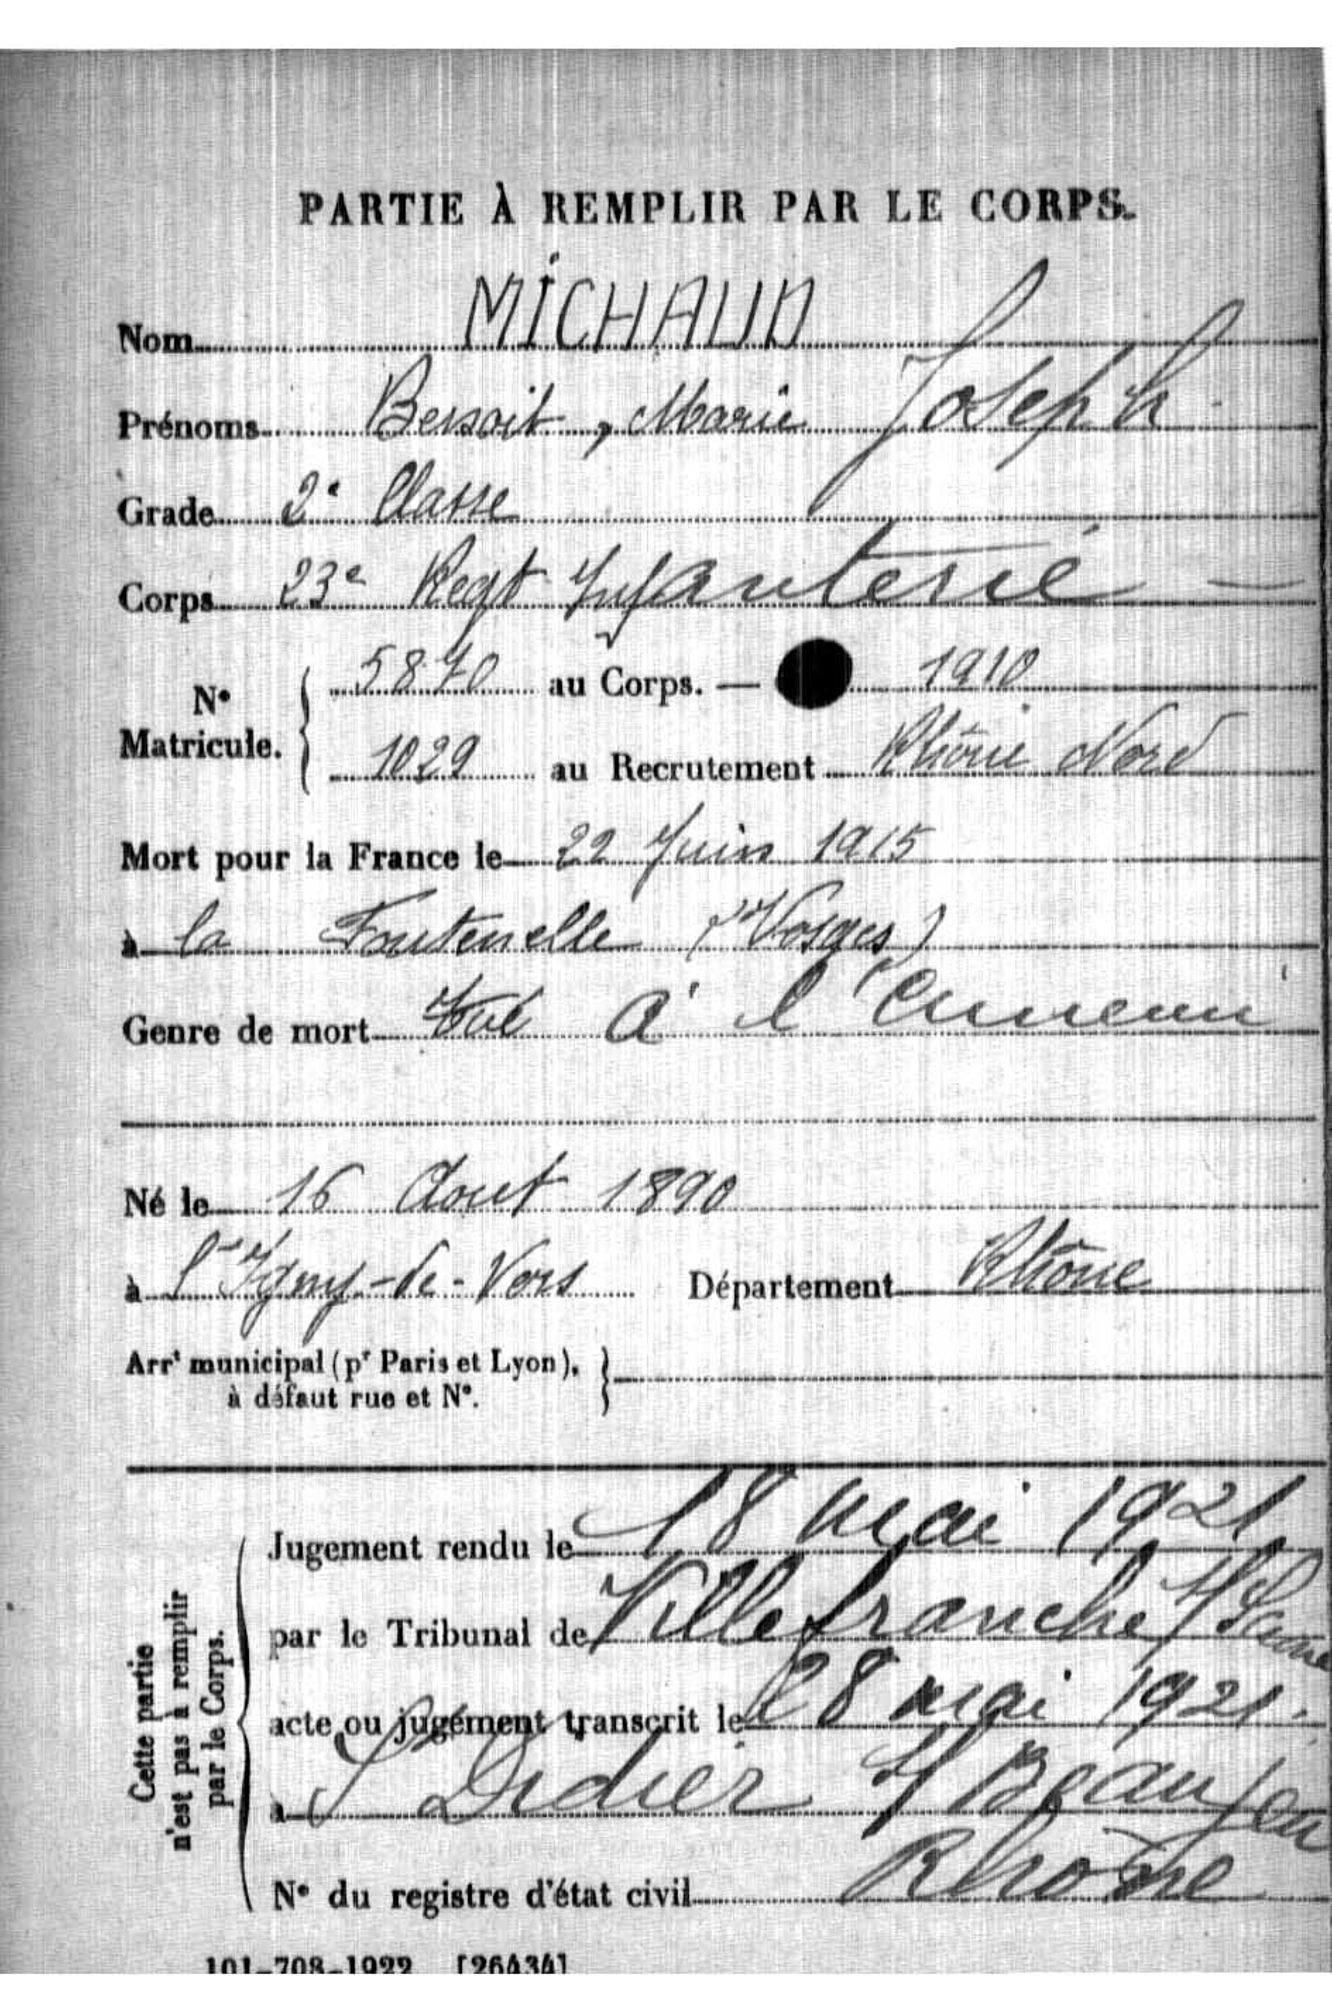 PARTIE À REMPLIR PAR LE CORPS.
Nom MICHAUD
Prénoms Benoit, Marie Joseph
Grade 2e Classe
Corps 23e Regt Infanterie
N° Matricule. { 5870 au Corps. — 1910
1029 au Recrutement Rhône Nord
Mort pour la France le 22 Juin 1915
à la Fontenelle (Vosges)
Genre de mort Tué à l'ennemi
Né le 16 Aout 1890
à St Igny-de-Vers Département Rhône
Arrt municipal (pr Paris et Lyon), }
à défaut rue et N°.
Cette partie n'est pas à remplir par le Corps.
Jugement rendu le 18 mai 1921
par le Tribunal de Villefranche s/ Saône
acte ou jugement transcrit le 28 mai 1921.
à St Didier s/ Beaujeu
Rhône
N° du registre d'état civil
101-708-1922 [26434]